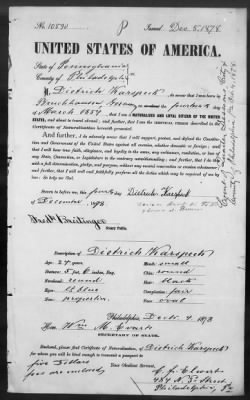 No. 10890
Issued Dec. 5. 1878.
UNITED STATES OF AMERICA.
State of Pennsylvania
County of Philadelphia
I, Dietrich Karspeck, do swear that I was born in
on the fourteenth day
of March 1854; that I am a NATURALIZED AND LOYAL CITIZEN OF THE UNITED
STATES, and about to travel abroad; and further, that I am the IDENTICAL PERSON described in the
Certificate of Naturalization herewith presented.
And further, I do solemnly swear that I will support, protect, and defend the Constitution
and Government of the United States against all enemies, whether domestic or foreign; and
that I will bear true faith, allegiance, and loyalty to the same, any ordinance, resolution, or law of
any State, Convention, or Legislature to the contrary notwithstanding; and further, that I do this with
a full determination, pledge, and purpose, without any mental reservation or evasion whatsoever;
and further, that I will well and faithfully perform all the duties which may be required of me
by law: So help me God.
Sworn to before me, this fourth day
of December, 1878
Dietrich Karspeck
Notary Public.
Description of Dietrich Karspeck
Age: 24 years
Mouth: small
Stature: 5 feet inches, Eng.
Chin: round
Forehead: round
Hair: black
Eyes: blue
Complexion: fair
Nose:
Face: oval
Philadelphia, Dec 4 1878
Hon. Wm M. Evarts
SECRETARY OF STATE.
Herewith, please find Certificate of Naturalization of Dietrich Karspeck
for whom you will be kind enough to transmit a passport to
five Dollars
fee are enclosed
Your Obedient Servant,
Street
Philadelphia, Pa